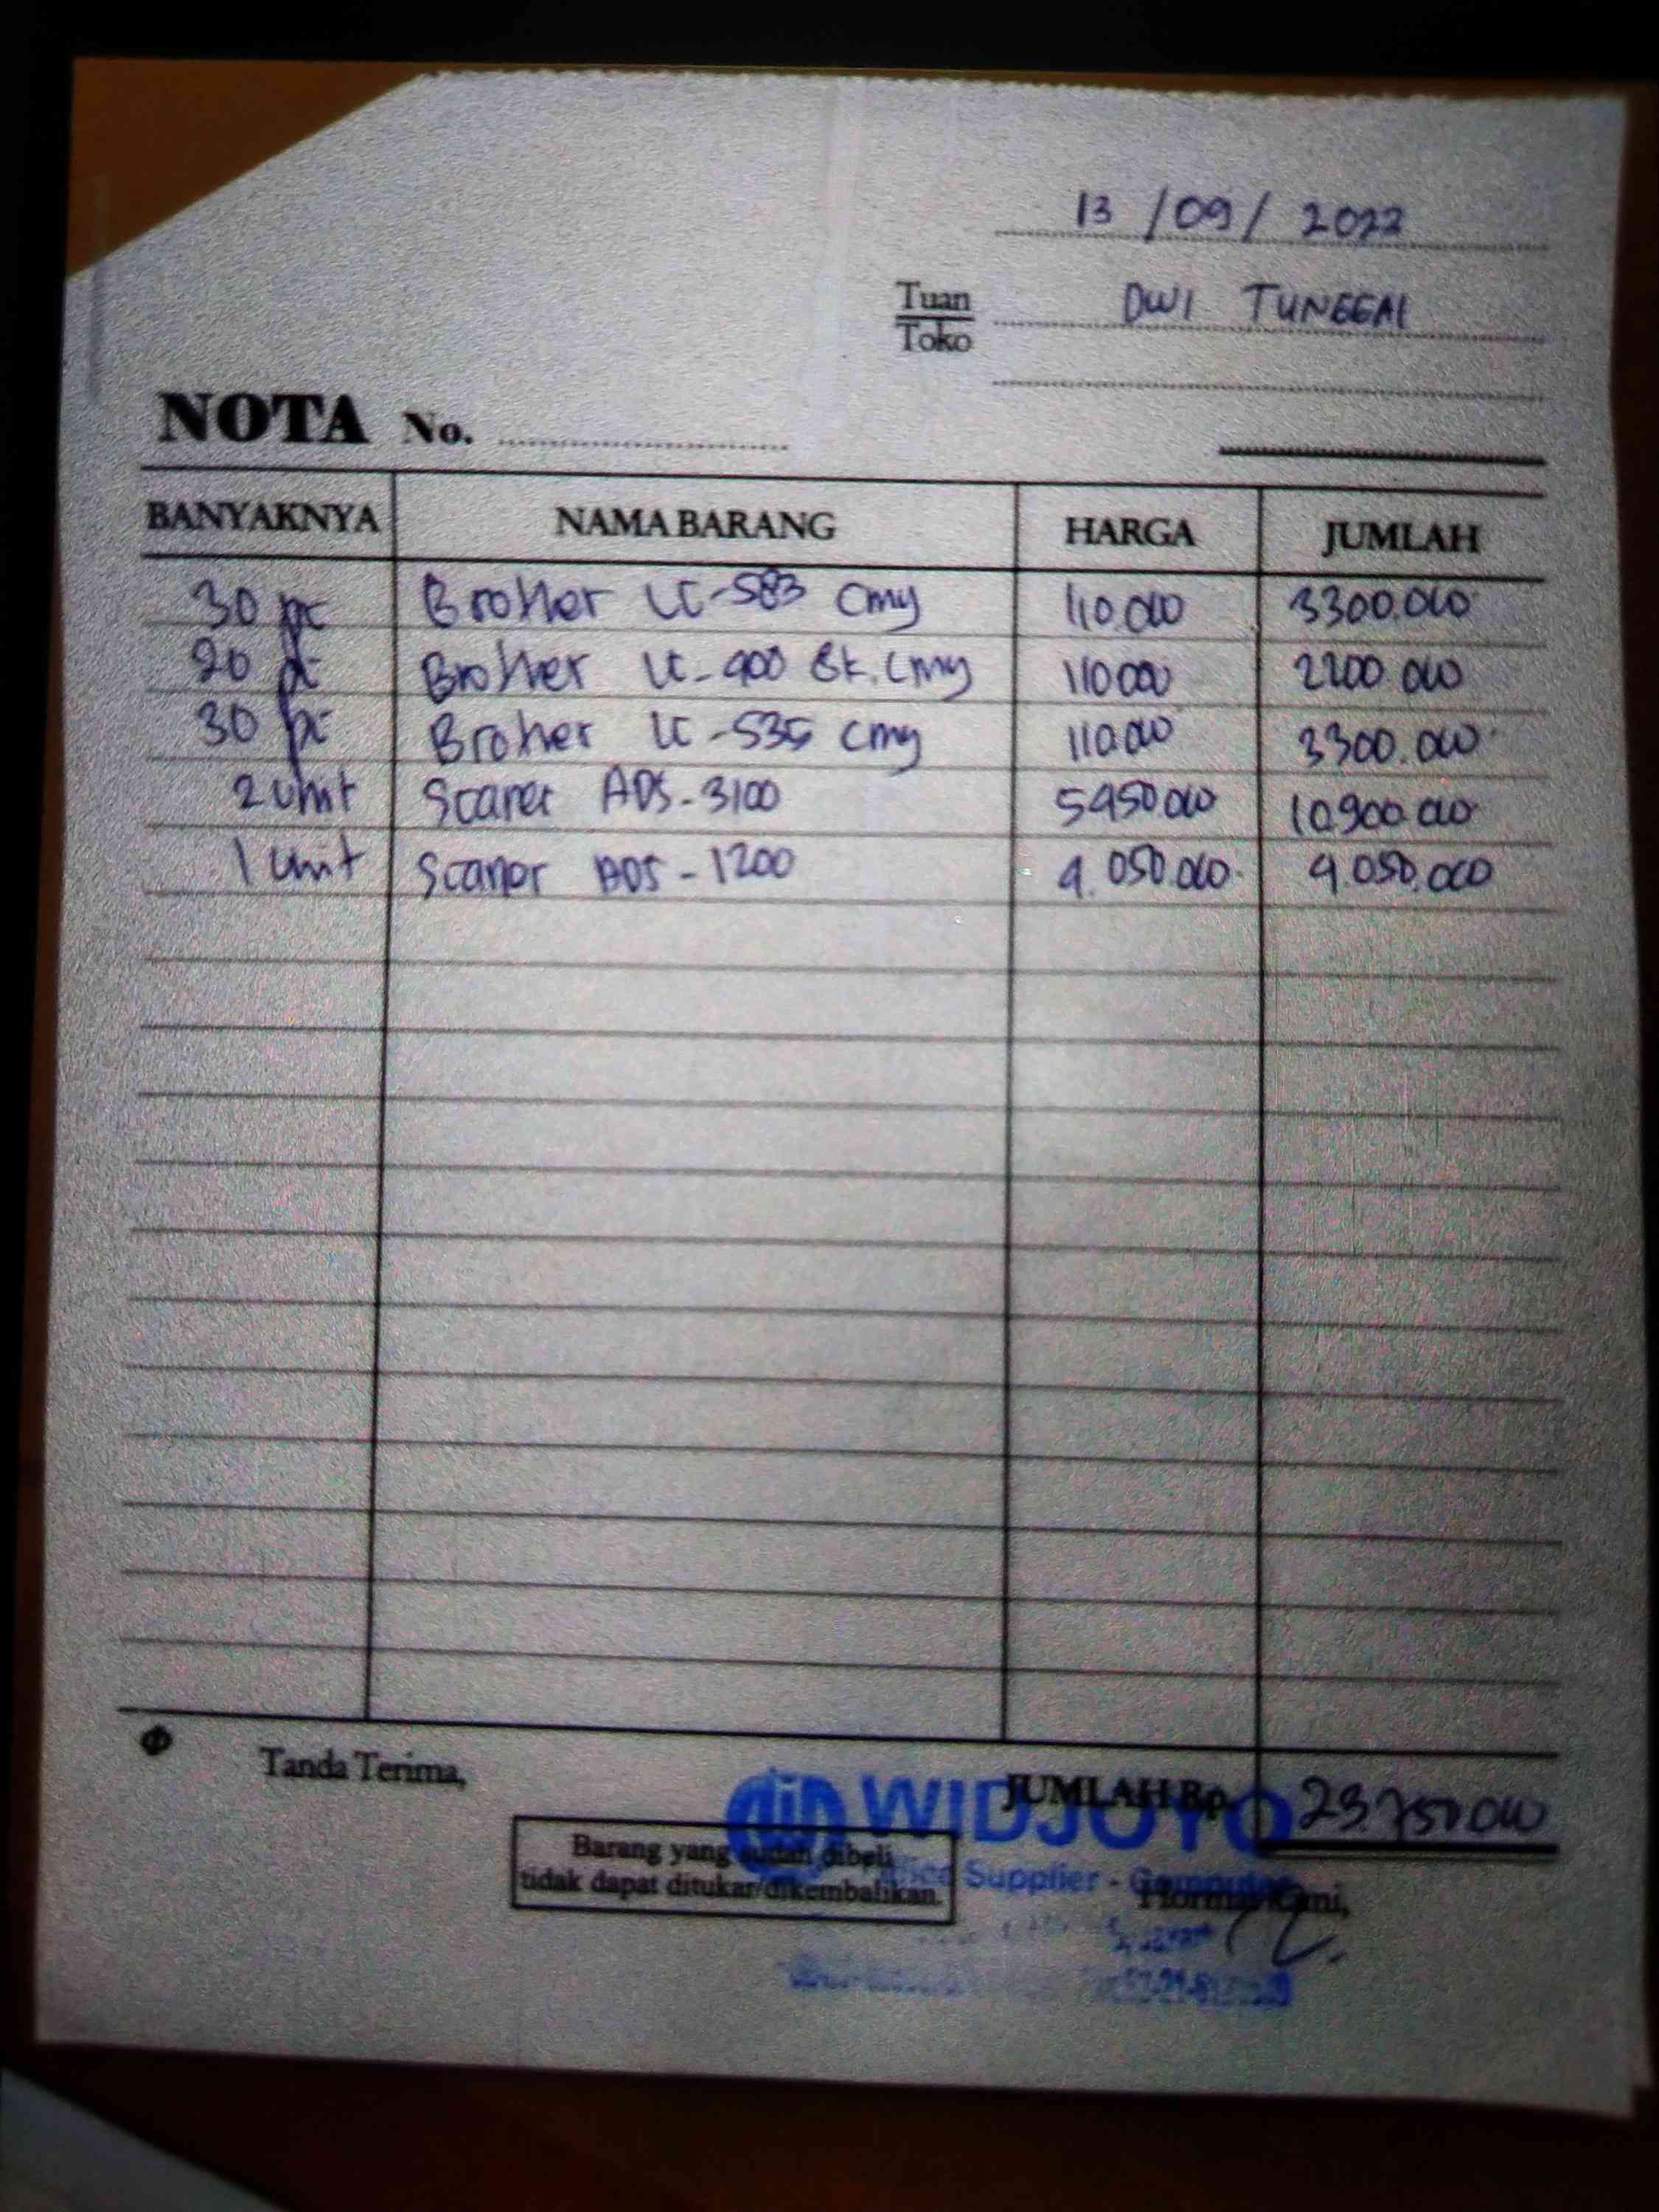 13 / 09 / 2022
Tuan
Toko
DWI TUNGGAL
NOTA No.
BANYAKNYA NAMA BARANG HARGA JUMLAH
30 pc Brother LC-583 Cmy 110.000 3300.000
20 pc Brother LC-400 Bk.Cmy 110000 2200.000
30 pc Broher LC-535 cmy 110.000 3300.000
2 unit Scaner ADS-3100 5450000 10.900.000
1 Unit Scaner ADS-1200 4.050.000 4.050.000
Tanda Terima,
JUMLAH Rp. 23.750.000
WIDJOYO
Supplier - Computer
Barang yang sudah dibeli
tidak dapat ditukar/dikembalikan.
Hormat Kami,